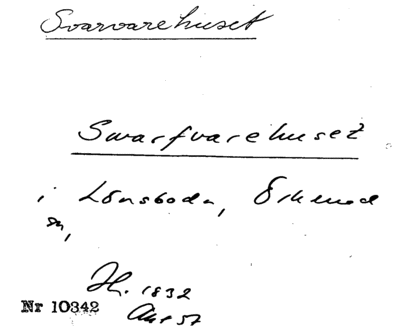 Svarvarehuset
Swarfvarehuset
i Lönsboda, Örkened
sn,
Hl. 1832
Akt 57
Nr 10342